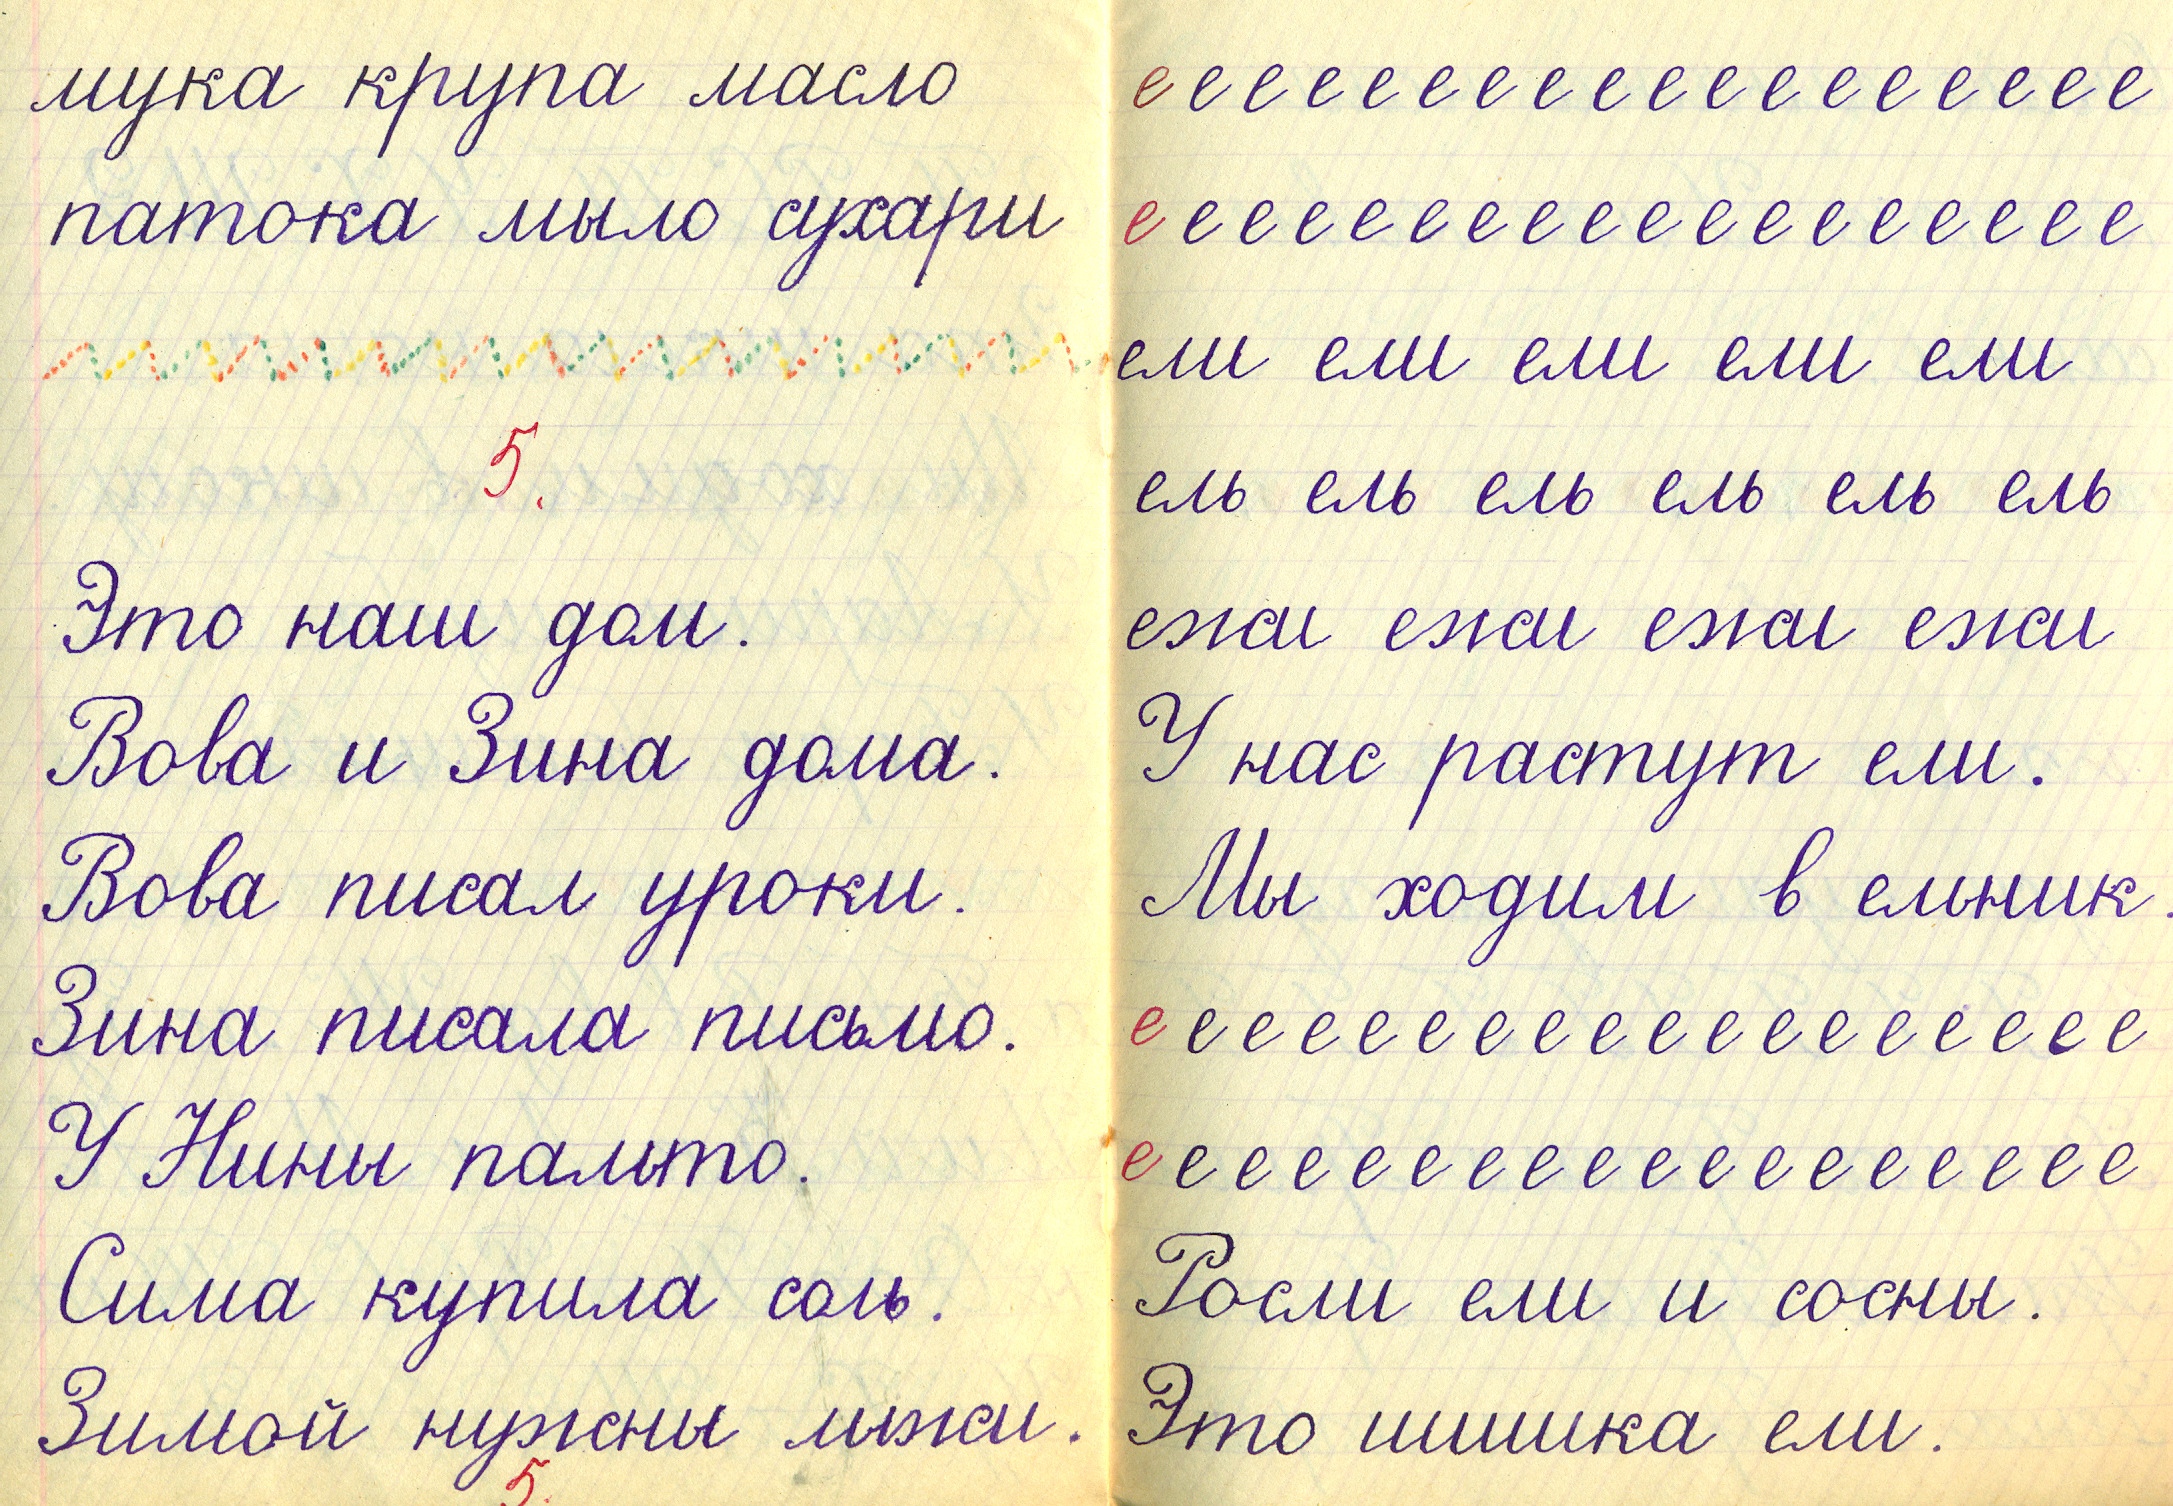 мука крупа масло
патока мыло сухари
5.
Это наш дом.
Вова и Зина дома.
Вова писал уроки.
Зина писала письмо.
У Нины пальто.
Сима купила соль.
Зимой нужны лыжи.
5.
е е е е е е е е е е е е е е е е е е
е е е е е е е е е е е е е е е е е е
ели ели ели ели ели
ель ель ель ель ель ель
ежи ежи ежи ежи
У нас растут ели.
Мы ходим в ельник.
е е е е е е е е е е е е е е е е е е
е е е е е е е е е е е е е е е е е е
Росли ели и сосны.
Это шишка ели.